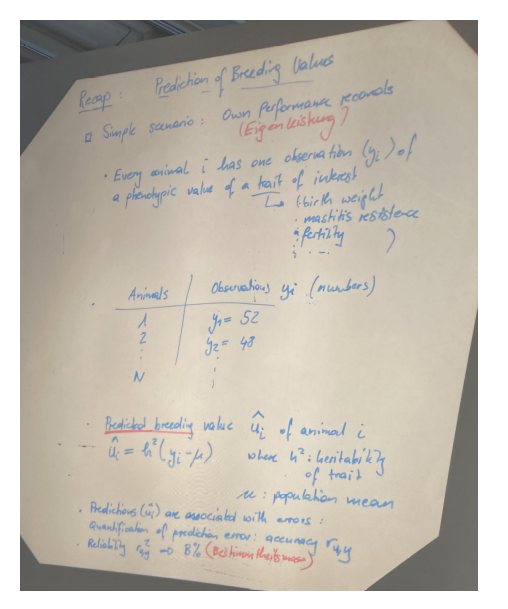 Recap: Prediction of Breeding Values
□ Simple scenario: Own performance records
(Eigenleistung)
• Every animal i has one observation (yi) of
a phenotypic value of a trait of interest
↳ (· birth weight
· mastitis resistence
· fertility
: ... )
• Animals | Observations yi (numbers)
1 | y1 = 52
2 | y2 = 48
⋮ | ⋮
N | ⋮
• Predicted breeding value ûi of animal i
ûi = h²(yi - μ) where h²: heritability
of trait
μ: population mean
• Predictions (ûi) are associated with errors:
Quantification of prediction error: accuracy ru,y
• Reliability r²u,y → B% (Bestimmtheitsmass)